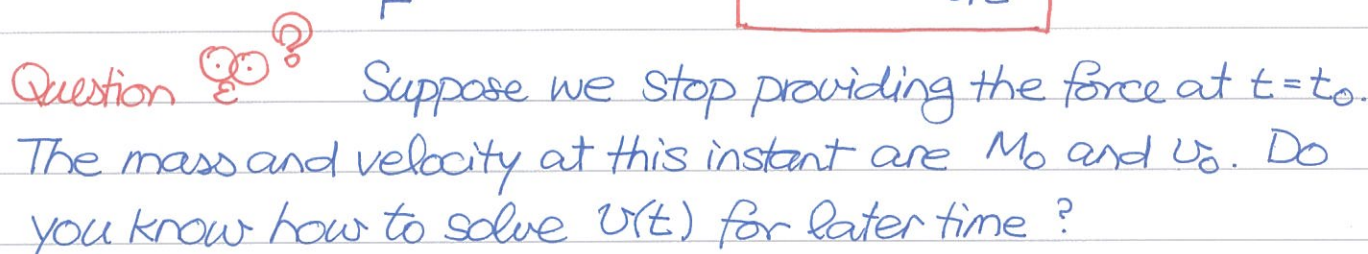 Question ? Suppose we stop providing the force at t=t₀.
The mass and velocity at this instant are M₀ and v₀. Do
you know how to solve v(t) for later time ?